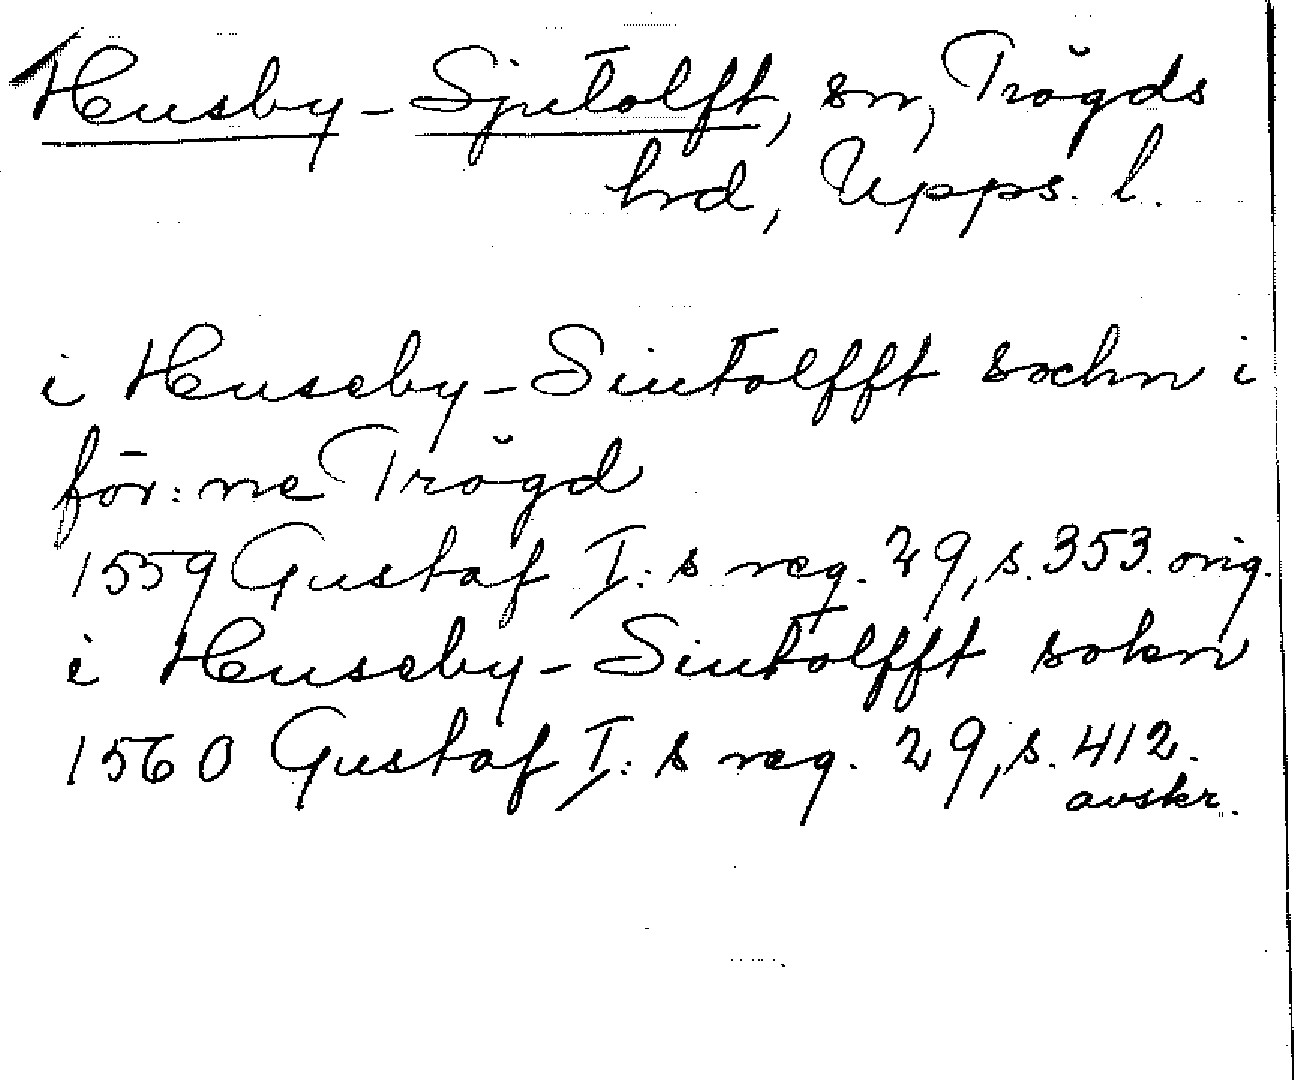 Husby-Sjutolft, sn, Trögds
hrd, Upps. l.
i Huseby-Siutolfft sochn i
för:ne Trögd
1559 Gustaf I:s reg. 29, s. 353. orig.
i Huseby-Siutolfft sokn
1560 Gustaf I:s reg. 29, s. 412.
avskr.